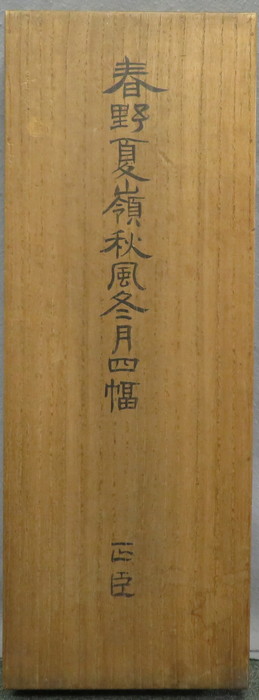 春野夏嶺秋風冬月四幅
正臣